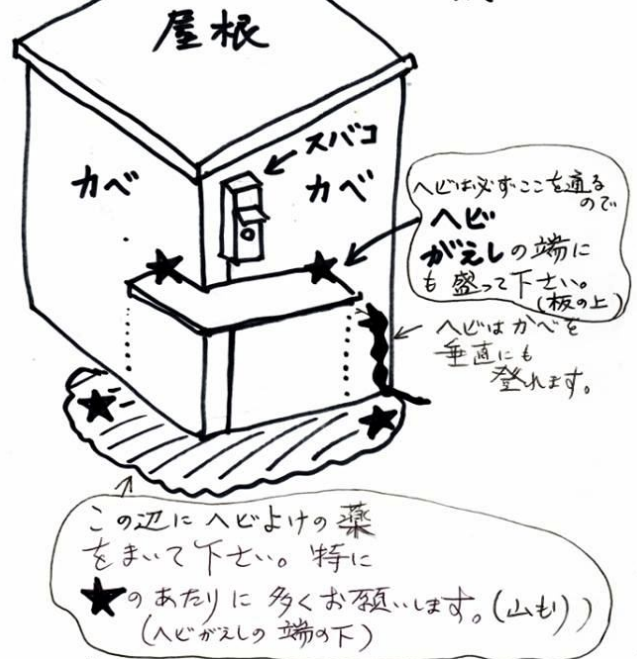 屋根
スバコ
カベ
カベ
ヘビは必ずここを通る
ので
ヘビ
がえしの端に
も盛って下さい。
(板の上)
ヘビはかべを
垂直にも
登れます。
この辺にヘビよけの薬
をまいて下さい。特に
★のあたりに多くお願いします。(山もり)
(ヘビがえしの端の下)